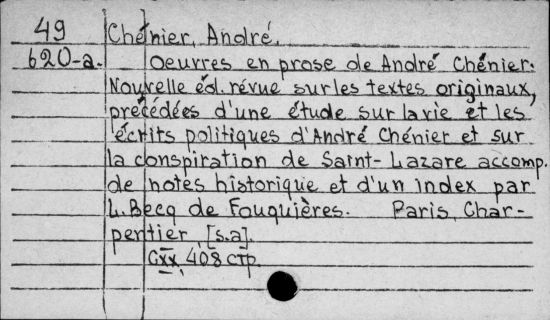 49 Chénier, André.
620-a. Oeuvres en prose de André Chénier.
Nouvelle éd. révue sur les textes originaux,
précédées d'une étude sur la vie et les
écrits politiques d'André Chénier et sur
la conspiration de Saint-Lazare accomp.
de notes historique et d'un index par
L. Becq de Fouquières. Paris, Char-
pentier, [s.a].
CXX, 408 стр.